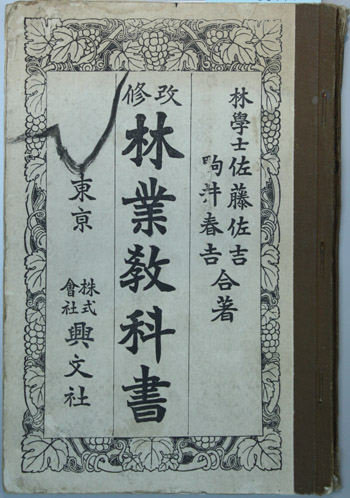 林學士佐藤佐吉
駒井春吉
合著
修改
林業教科書
東京
株式會社
興文社